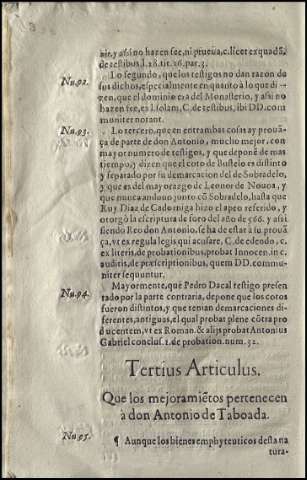 nir, y aſsi no hazen fee, ni prueua, c. licet ex quadã,
de teſtibus, l. 28. tit. 16. par. 3.
Nu. 92.
Lo ſegundo, que los teſtigos no dan razon do
ſus dichos, eſpecialmente en quanto à lo que di-
zen, que el dominio era del Monaſterio, y aſsi no
hazen fee, ex l. ſolam, C. de teſtibus, ibi DD. com
muniter notant.
Nu. 93.
Lo tercero, que en entrambas coſas ay prouã-
ça de parte de don Antonio, mucho mejor, con
mayor numero de teſtigos, y que deponẽ de mas
tiempo, y dizen que el coto de Buſtelo es diſtinto
y ſeparado por ſu demarcacion del de Sobradelo,
y que es del mayorazgo de Leonor de Nouoa, y
que nunca anduuo junto cõ Sobradelo, haſta que
Ruy Diaz de Cadorniga hizo el apeo referido, y
otorgò la eſcriptura de foro del año de 566. y aſsi
ſiendo Reo don Antonio, ſe ha de eſtar à ſu prouã
ça, vt ex regula legis qui acuſare, C. de edendo, c.
ex literis, de probationibus, probat Innocen. in c.
auditis, de præſcriptionibus, quem DD. commu-
niter ſequuntur.
Nu. 94.
Mayormente, que Pedro Dacal teſtigo preſen
tado por la parte contraria, depone que los cotos
fueron diſtintos, y que tenian demarcaciones di-
ferentes, antiguas, el qual probat plene cõtra pro
ducentem, vt ex Roman. & alijs probat Antonius
Gabriel concluſ. 1. de probation. num. 32.
Tertius Articulus.
Que los mejoramiẽtos pertenecen
à don Antonio de Taboada.
Nu. 95.
¶ Aunque los bienes emphyteuticos deſta na
tura-